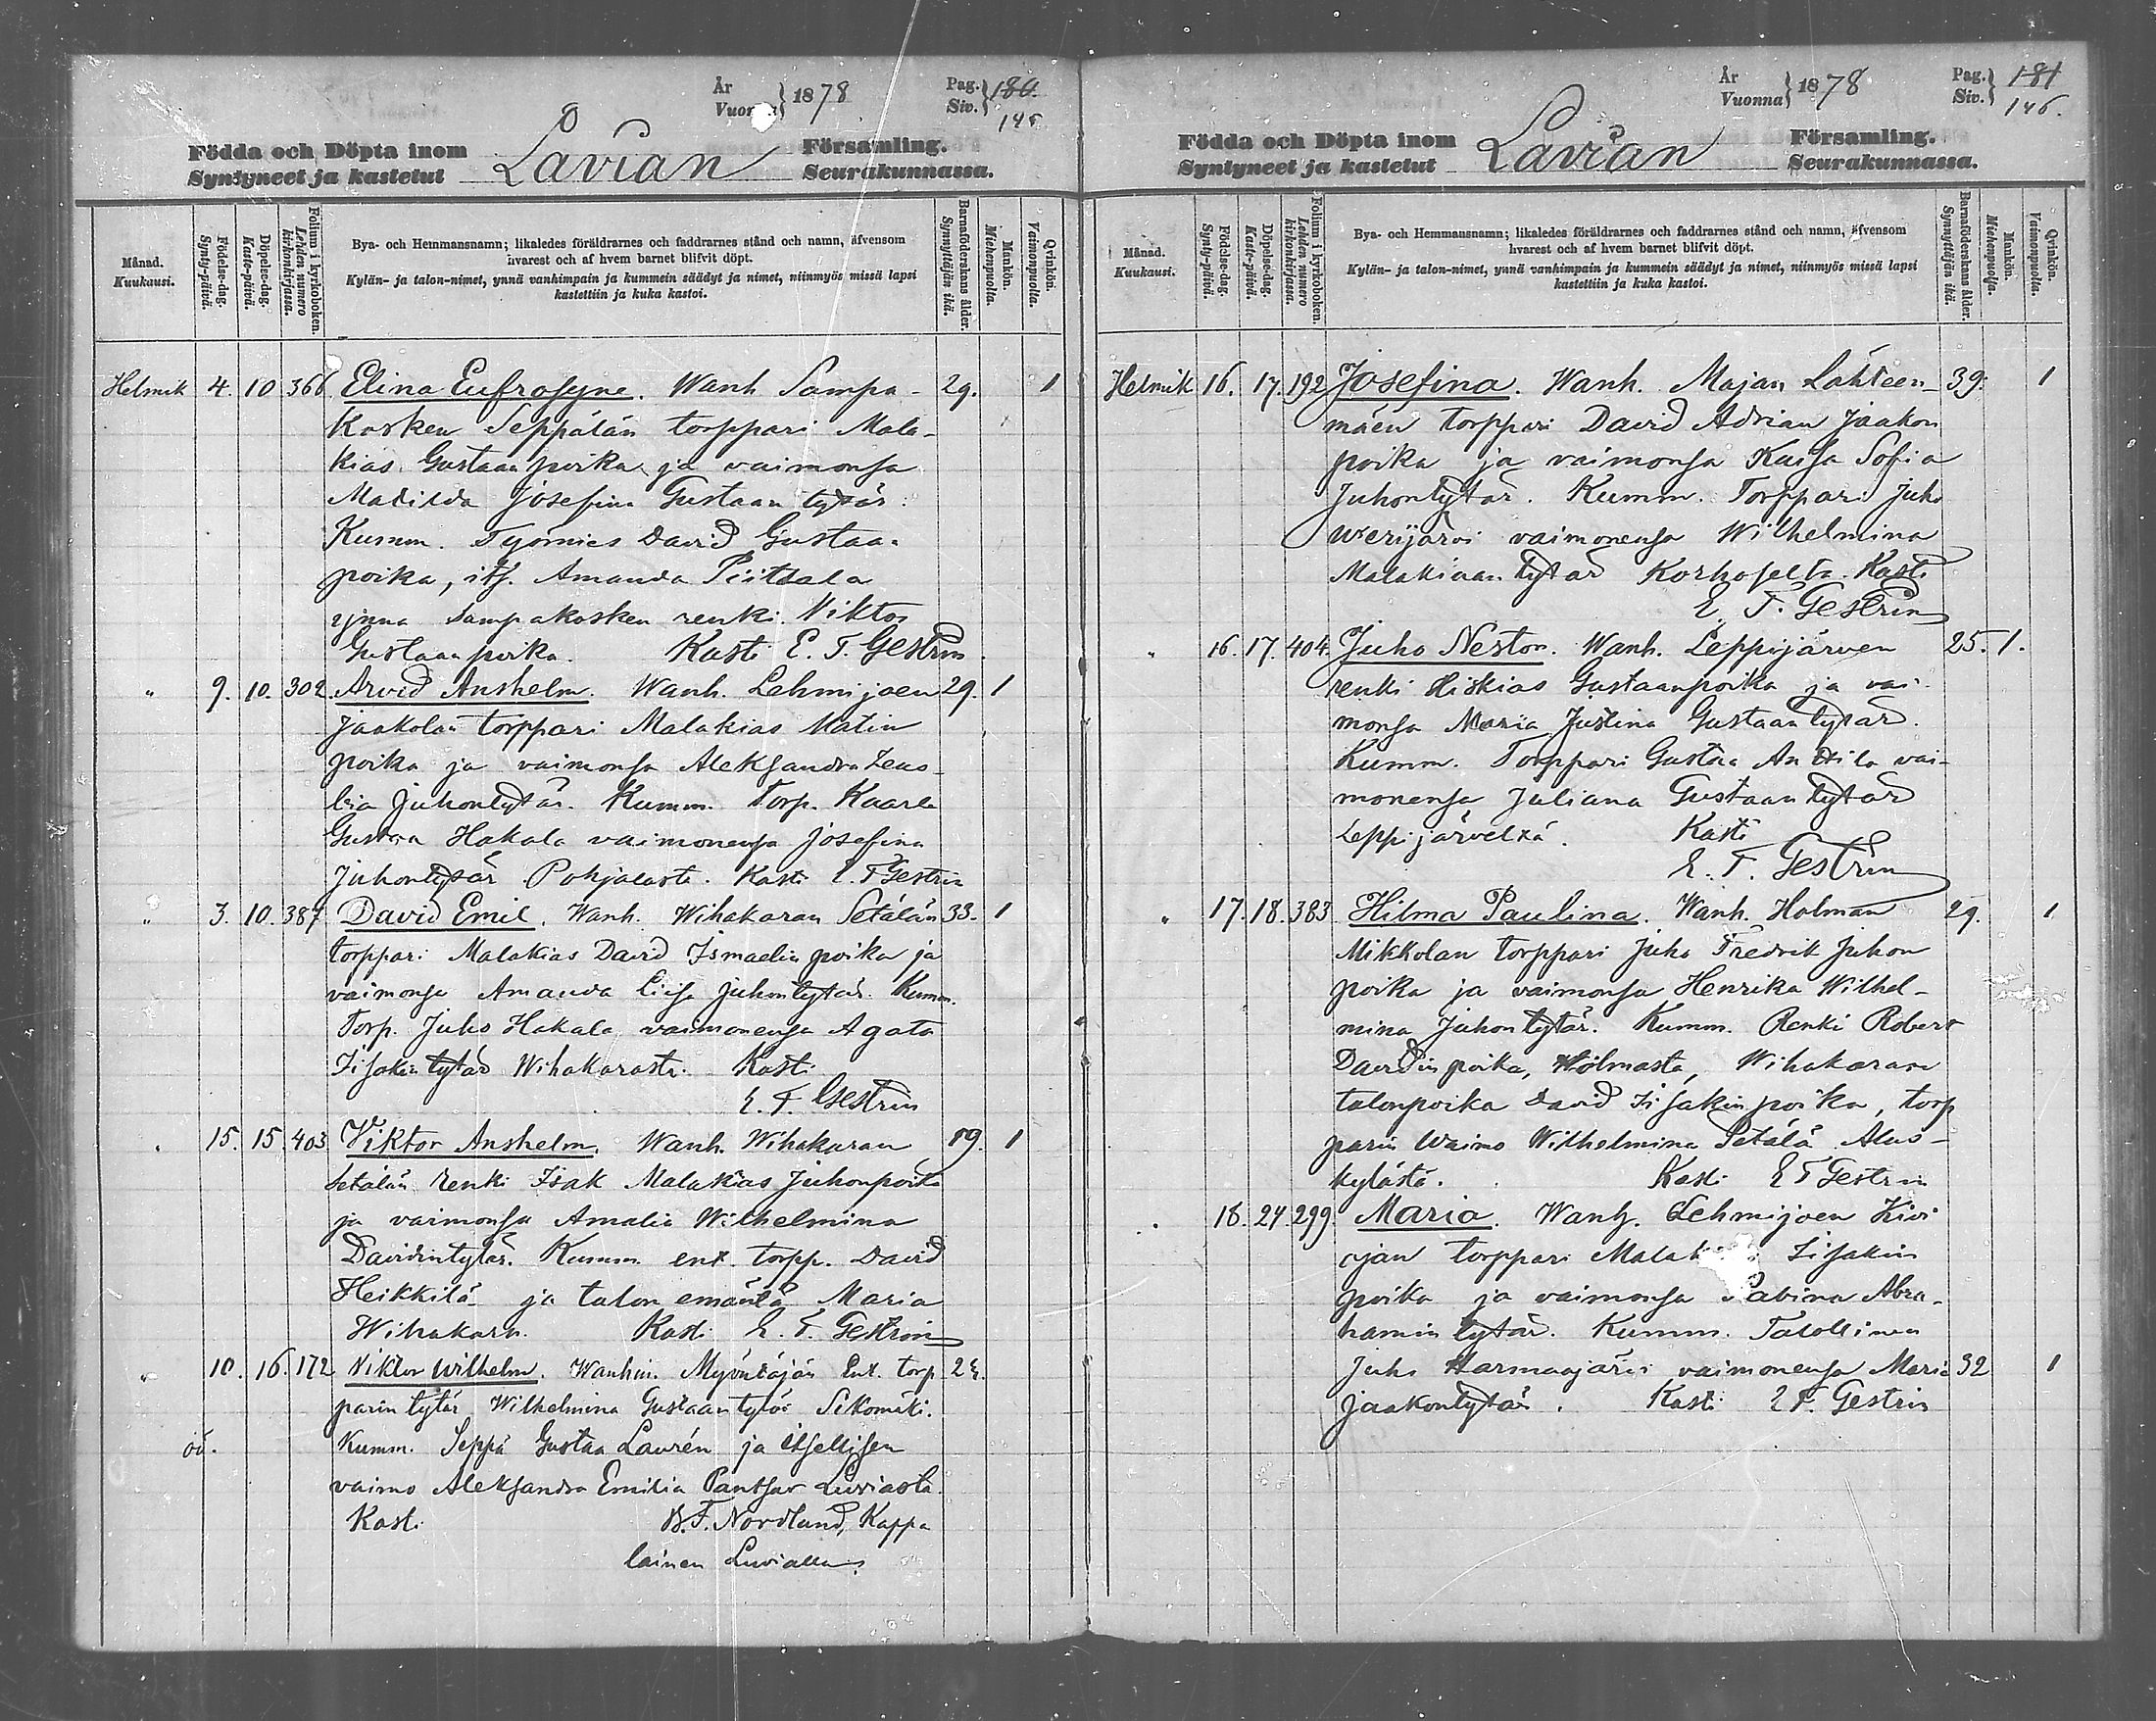 År
Vuonna } 1878
Pag.
Siv. } 180.
145
Födda och Döpta inom Lavian Församling.
Syntyneet ja kastetut Seurakunnassa.
Månad.
Kuukausi.
Födelse-dag.
Synty-päivä.
Döpelse-dag.
Kaste-päivä.
Folium i kyrkoboken.
Lehden numero kirkonkirjassa.
Bya- och Hemmansnamn; likaledes föräldrarnes och faddrarnes stånd och namn, äfvensom
hvarest och af hvem barnet blifvit döpt.
Kylän- ja talon-nimet, ynnä vanhimpain ja kummein säädyt ja nimet, niinmyös missä lapsi
kastettiin ja kuka kastoi.
Barnaföderskans ålder.
Synnyttäjän ikä.
Mankön.
Miehenpuolia.
Qvinkön.
Vaimonpuolia.
Helmik 4. 10 366 Elina Eufrosyne. Wanh Sampa- 29. 1
kosken Seppälän torppari Mala-
kias Gustaanpoika ja vaimonsa
Matilda Josefina Gustaan tytär.
Kumm. Työmies David Gustaa-
poika, its. Amanda Piitdala
ynnä Sampakosken renki Viktor
Gustaanpoika. Kasti E. F. Gestrin
" 9. 10. 302. Arvid Anshelm. Wanh. Lehmijoen 29. 1
Jaakolan torppari Malakias Matin
poika ja vaimonsa Aleksandra
Juhontytär. Kumm. Torp. Kaarle
Gustaa Hakala vaimonensa Josefina
Juhontytär Pohjalasta. Kasti E. F Gestrin
" 3. 10. 387 David Emil. Wanh. Wihakaran Setälän 33. 1
torppari Malakias David Ismaelin poika ja
vaimonsa Amanda Liisa Juhontytär. Kumm.
Torp. Juho Hakala vaimonensa Agata
Iisakin tytär Wihakarasta. Kasti
E. F. Gestrin
" 15. 15. 403 Viktor Anshelm. Wanh. Wihakaran 19. 1
Setälän renki Isak Malakias Juhonpoika
ja vaimonsa Amalia Wilhelmina
Davidintytär. Kumm. ent. torpp. David
Heikkilä ja talon emäntä Maria
Wihakara. Kasti E. F. Gestrin
" 10. 16. 172 Viktor Wilhelm. Wanhin. Myöntäjän Ent. torp
parin tytär Wilhelmina Gustaan tytär Sikomäki.
oä. Kumm. Seppä Gustaa Laurén ja itsellisen
vaimo Aleksandra Emilia Pantsar Luviasta.
Kasti B. F. Nordlund, Kappa
lainen Luvialla.
År
Vuonna } 1878
Pag.
Siv. } 181
146.
Födda och Döpta inom Lavian Församling.
Syntyneet ja kastetut Seurakunnassa.
Månad.
Kuukausi.
Födelse-dag.
Synty-päivä.
Döpelse-dag.
Kaste-päivä.
Folium i kyrkoboken.
Lehden numero kirkonkirjassa.
Bya- och Hemmansnamn; likaledes föräldrarnes och faddrarnes stånd och namn, äfvensom
hvarest och af hvem barnet blifvit döpt.
Kylän- ja talon-nimet, ynnä vanhimpain ja kummein säädyt ja nimet, niinmyös missä lapsi
kastettiin ja kuka kastoi.
Barnaföderskans ålder.
Synnyttäjän ikä.
Mankön.
Miehenpuolia.
Qvinkön.
Vaimonpuolia.
Helmik 16. 17. 192 Josefina. Wanh. Majan Lähteen- 39. 1
mäen torppari David Adrian Jaakon
poika ja vaimonsa Kaisa Sofia
Juhontytär. Kumm. Torppari Juho
Werijärvi vaimonensa Wilhelmina
Malakiaan tytär Korhoselta. Kasti
E. F. Gestrin
" 16. 17. 404. Juho Nestor. Wanh. Leppijärven 25. 1.
renki Hiskias Gustaanpoika ja vai-
monsa Maria Justina Gustaantytär.
Kumm. Torppari Gustaa Anttila vai-
monensa Juliana Gustaantytär
Leppijärveltä. Kasti
E. F. Gestrin
" 17. 18. 383 Hilma Paulina. Wanh. Holman 29. 1
Mikkolan torppari Juho Fredrik Juhon
poika ja vaimonsa Henrika Wilhel-
mina Juhontytär. Kumm. Renki Robert
Davidin poika, Holmasta, Wihakaran
talonpoika David Iisakin poika, torp
parin waimo Wilhelmina Setälä Alus-
kylästä. Kasti E F Gestrin
" 18. 24. 299. Maria. Wanh. Lehmijoen Kivi
ojan torppari Malak Iisakin
poika ja vaimonsa Sabina Abra-
hamin tytär. Kumm. Talollinen
Juho Harmaajärvi vaimonensa Maria 32 1
Jaakontytär. Kasti E F. Gestrin